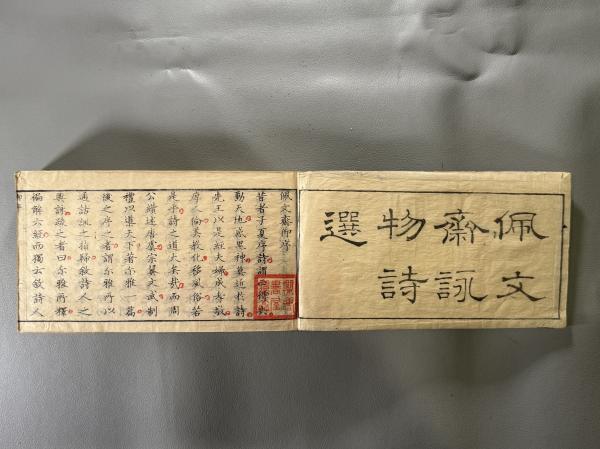 佩文
齋詠
物詩
選
佩文齋御序
昔者子夏序詩謂正得失
動天地感鬼神莫近於詩
先王以是經夫婦成孝敬
厚人倫美教化移風俗若
是乎詩之道大矣哉而周
公纘述唐虞宗翼文武制
禮以導天下著爾雅一篇
後之序之者謂爾雅所以
通詁訓之指歸敘詩人之
興詠疏之者曰爾雅所釋
徧解六經而獨云敘詩人